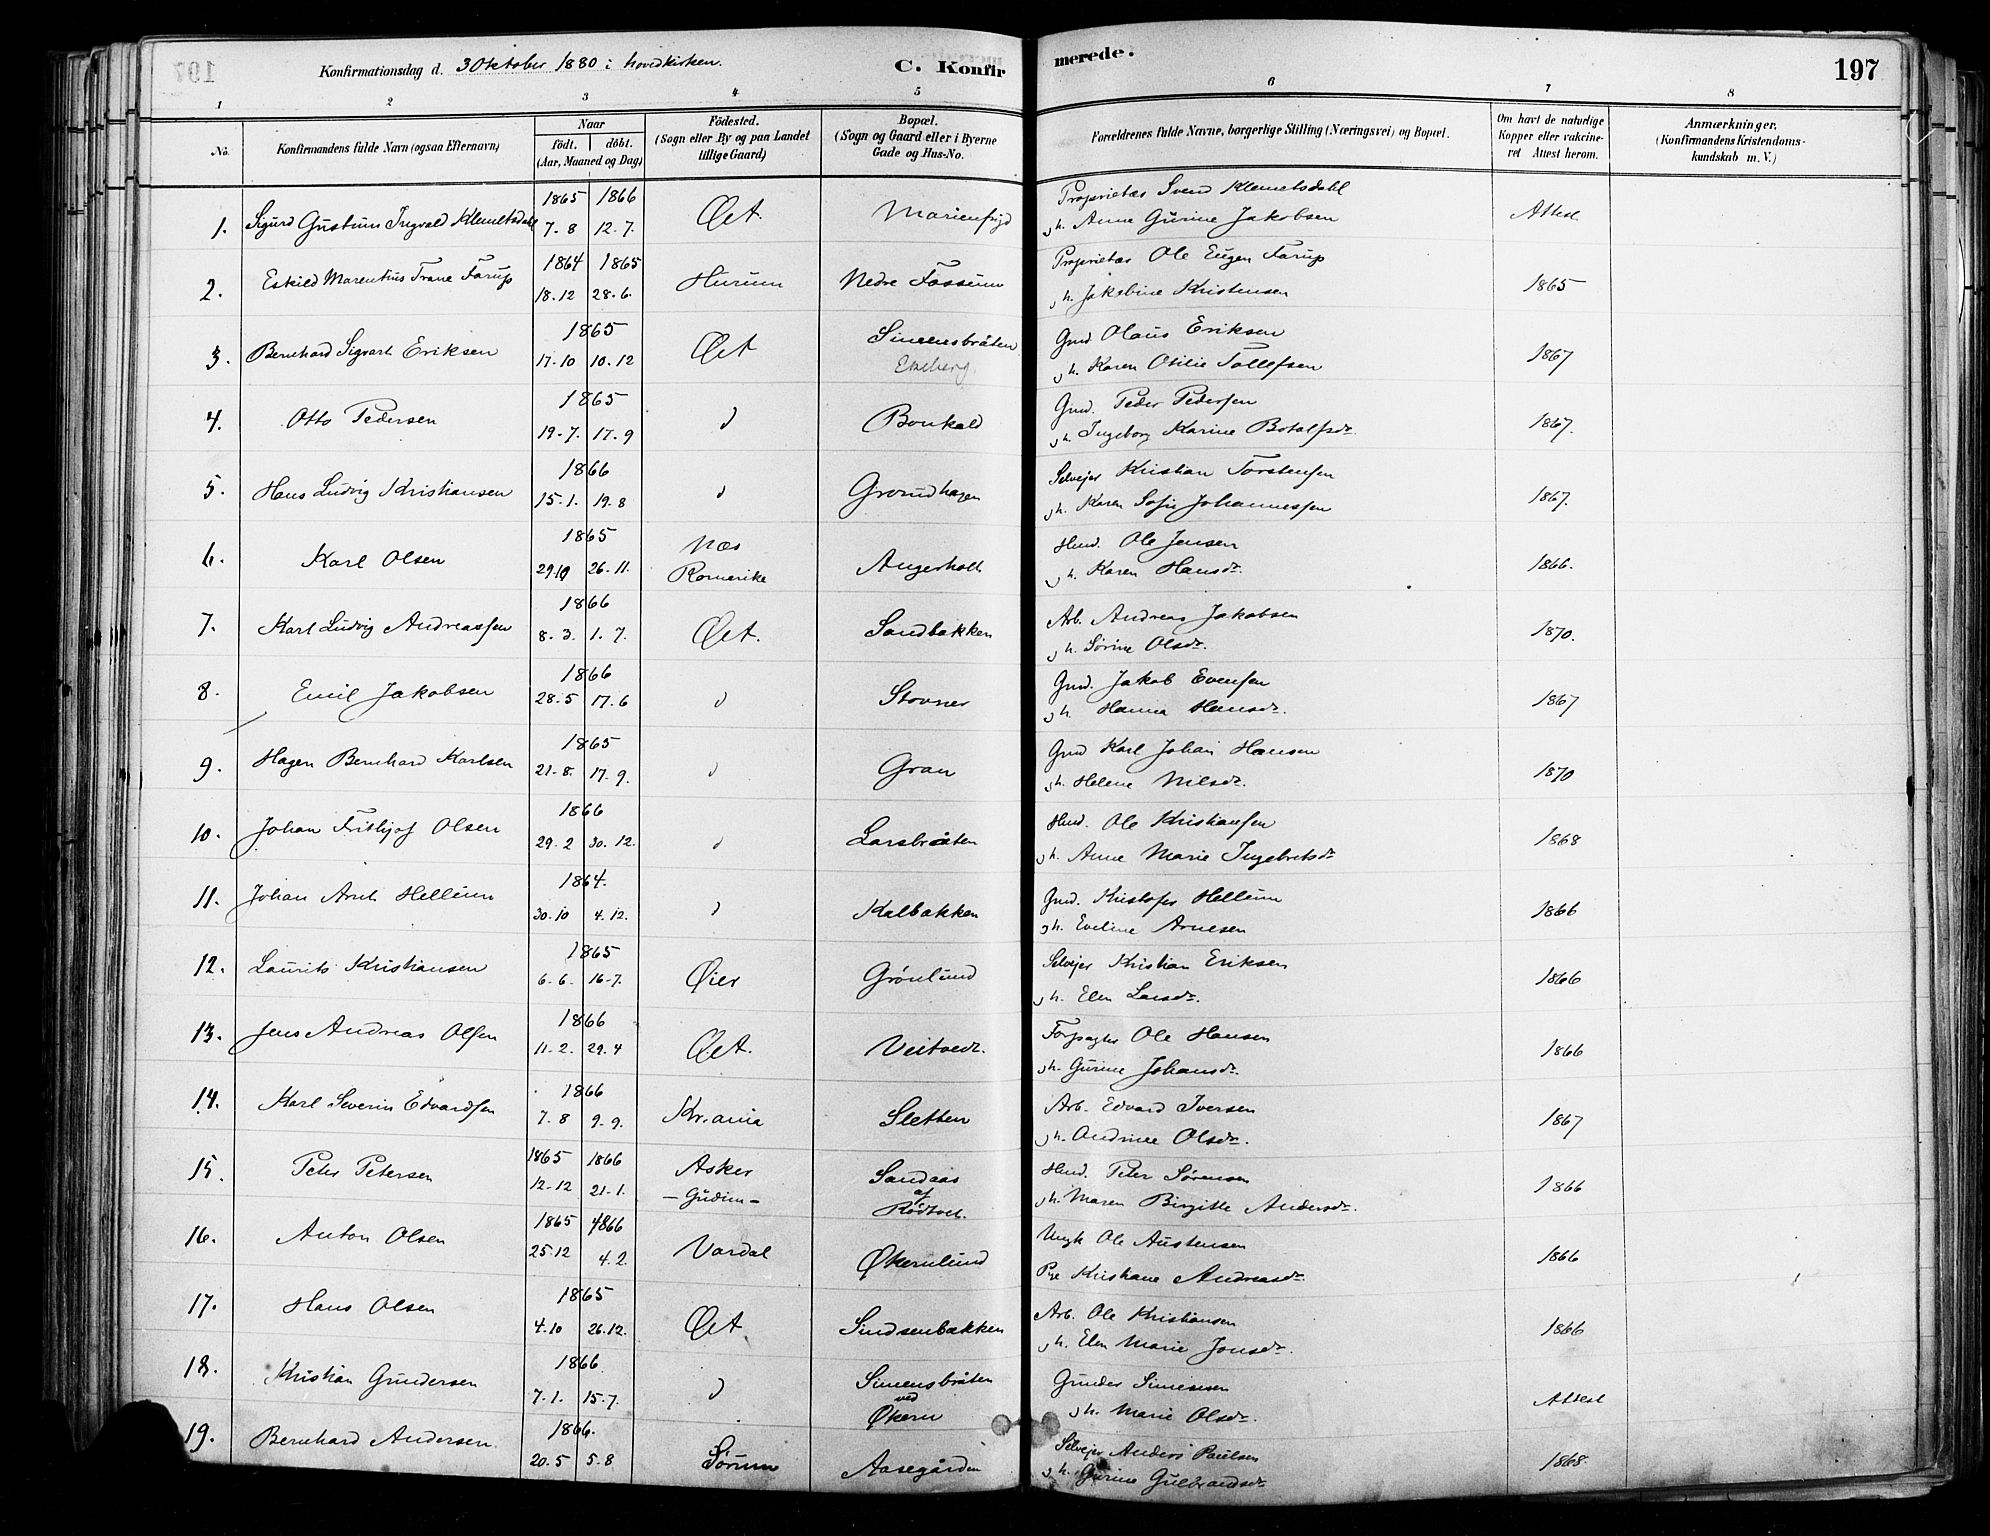 Konfirmationsdag d. 3 Oktober 1880 i hovedkirken.
C. Konfirmerede.
197
1 2 3 4 5 6 7 8
No.
Konfirmandens fulde Navn (ogsaa Efternavn)
Naar
Födt. döbt.
(Aar, Maaned og Dag)
Födested.
(Sogn eller By og paa Landet
tillige Gaard)
Bopæl.
(Sogn og Gaard eller i Byerne
Gade og Hus-No.
Forældrenes fulde Navne, borgerlige Stilling (Næringsvei) og Bopæl.
Om havt de naturlige
Kopper eller vakcine-
ret Attest herom.
Anmærkninger.
(Konfirmandens Kristendoms-
kundskab m. V.)
1865 1866 Proprietær Svend Klemetsdahl
1. Sigurd Gustinus Ingvald Klemetsdahl 7-8 12.7. Øet. Marienfryd h. Anne Gurine Jakobsen Attest
1864 1865 Proprietær Ole Eugen Farup
2. Eskild Marentius Trane Farup 18.12 28.6. Hurum Nedre Fossum h. Jakobine Kristensen 1865
1865 Simensbråten Gmd Olaus Eriksen
3. Bernhard Sigvart Eriksen 17-10 10.12 Øet Ekeberg h. Karen Otilie Tollefsen 1867
1865 Gmd. Peder Pedersen
4. Otto Pedersen 19-7. 17-9 d Bonkald h. Ingeborg Karine Botolfsdr. 1867.
1866 Selvejer Kristian Torstensen
5. Hans Ludvig Kristiansen 15-1. 19.8 d Grorudhagen h. Karen Sofie Johannessen 1867.
1865 Næs Hmd. Ole Jensen
6. Karl Olsen 29.10 26.11. Romerike Angerholt h. Karen Hansdr. 1866.
1866 Arb. Andreas Jakobsen
7. Karl Ludvig Andreassen 8-3. 1.7. Øet. Sandbakken h. Sørine Olsdr. 1870.
1866 Gmd. Jakob Evensen
8. Emil Jakobsen 28-5 17.6 d Stovner h. Hanna Hansdr. 1867
1865 Gmd Karl Johan Hansen
9. Hagen Bernhard Karlsen 21-8. 17.9. d Gran h. Helene Nilsdr. 1870
1866 Hmd. Ole Kristiansen
10. Johan Frithjof Olsen 29-2 30.12. d Larsbråten h. Anne Marie Ingebretsdr 1868
1864. Gmd. Kristofer Hellum
11. Johan Arnt Hellum 30.10 4.12. d Kalbakken h. Eveline Arnesen 1866
1865 Selvejer Kristian Eriksen
12. Laurits Kristiansen 6-6. 16-7. Øier Grönlund h. Elen Larsdr. 1866
1866 Forpagter Ole Hansen
13. Jens Andreas Olsen 11-2. 29.4 Øet. Veitvedt. h. Gurine Johansdr. 1866
1866 Arb. Edvard Iversen
14. Karl Severin Edvardsen 7-8 9-9. Kr.ania Sletten h. Andrine Olsdr. 1867
1865 1866 Asker Sandaas Hmd. Peter Sørensen
15. Peter Petersen 12-12 21-1. – Gudim – af Rödtvet. h. Maren Birgitte Andersdr. 1866
1865 1866 Ungk Ole Austensen
16. Anton Olsen 25.12 4.2. Vardal Økernlund Pge Kristiane Andreasdr 1866
1865 Arb. Ole Kristiansen
17. Hans Olsen 4.10 26.12. Øet Sindsenbakken h. Elen Marie Jonsdr. 1866
1866 Simensbråten Gunder Simensen
18. Kristian Gundersen 7-1. 15.7. d ved Økern h. Marie Olsdr. Attest
1866. Selvejer Anders Paulsen
19. Bernhard Andersen 20.5 5.8 Sörum Aasegården h. Gurine Gulbrandsdr 1868.